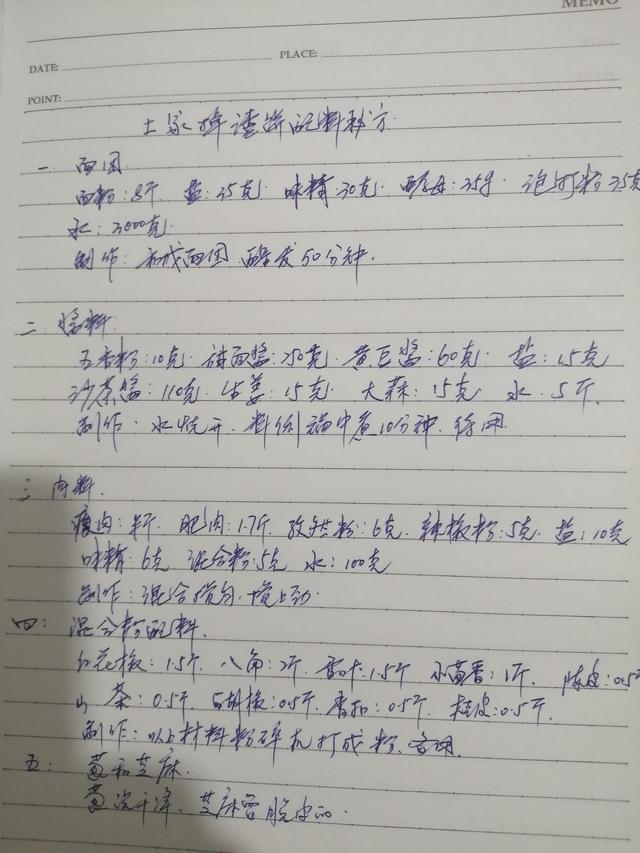 MEMO
DATE:
PLACE:
POINT:
土家掉渣饼配料秘方
一 面团
面粉:8斤 盐:35克 味精:30克 酵母:35g 泡打粉35克
水:3000克
制作:和成面团 醒发50分钟.
二 酱料
五香粉:10克 甜面酱:250克 黄豆酱:60克 盐:15克
沙茶酱:110克 生姜:15克 大蒜:15克 水:5斤.
制作:水烧开 料倒锅中煮10分钟 待用
三 肉料.
瘦肉: 肥肉:1.7斤 孜然粉:6克 辣椒粉:5克 盐:10克
味精:6克 混合粉:5克 水:100克
制作:混合搅匀
四: 混合粉配料.
红花椒:1.5斤 八角:2斤 香叶:1.5斤 小茴香:1斤 陈皮:0.5
山茶:0.5斤 白胡椒:0.5斤 香扣:0.5斤 桂皮:0.5斤.
制作:以上材料粉碎机打成粉.备用.
五: 葱和芝麻.
葱洗干净. 芝麻需脱皮的.